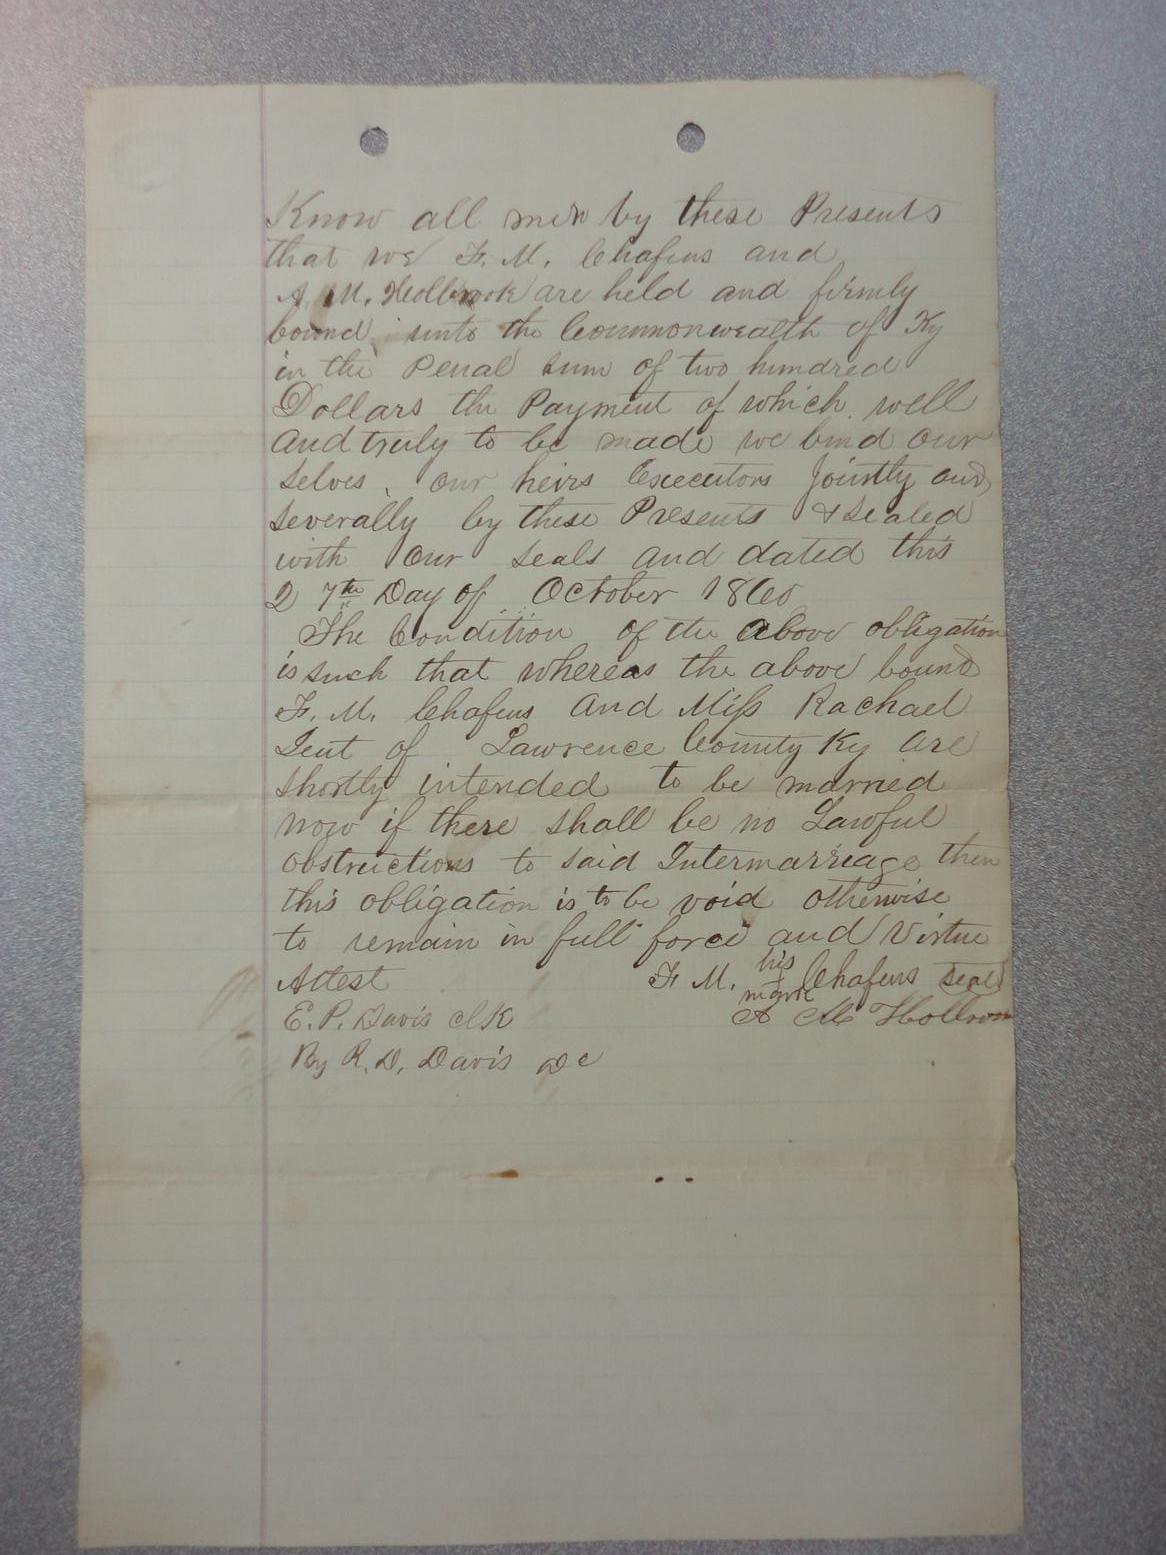 Know all men by these Presents
that we F. M. Chafins and
A. M. Holbrook are held and firmly
bound unto the Commonwealth of Ky
in the Penal sum of two hundred
Dollars the Payment of which well
and truly to be made we bind our
selves, our heirs Executors jointly and
severally by these Presents & sealed
with our seals and dated this
27th Day of October 1860
The Condition of the above obligation
is such that whereas the above bound
F. M. Chafins and Miss Rachael
Lent of Lawrence County Ky are
shortly intended to be married
now if there shall be no Lawful
obstructions to said Intermarriage then
this obligation is to be void otherwise
to remain in full force and Virtue
Attest F. M. his mark Chafins seal
E. P. Davis clk A M Holbrook
By R. D. Davis DC